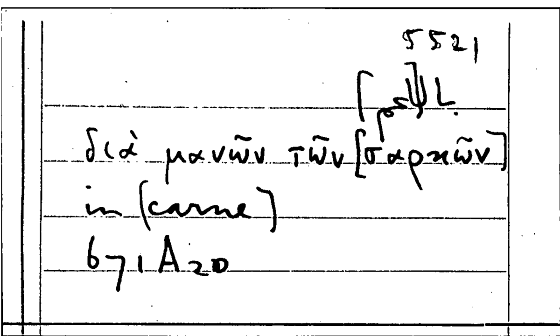 5521
διὰ μανῶν τῶν [σαρκῶν]
in (carne)
671A20